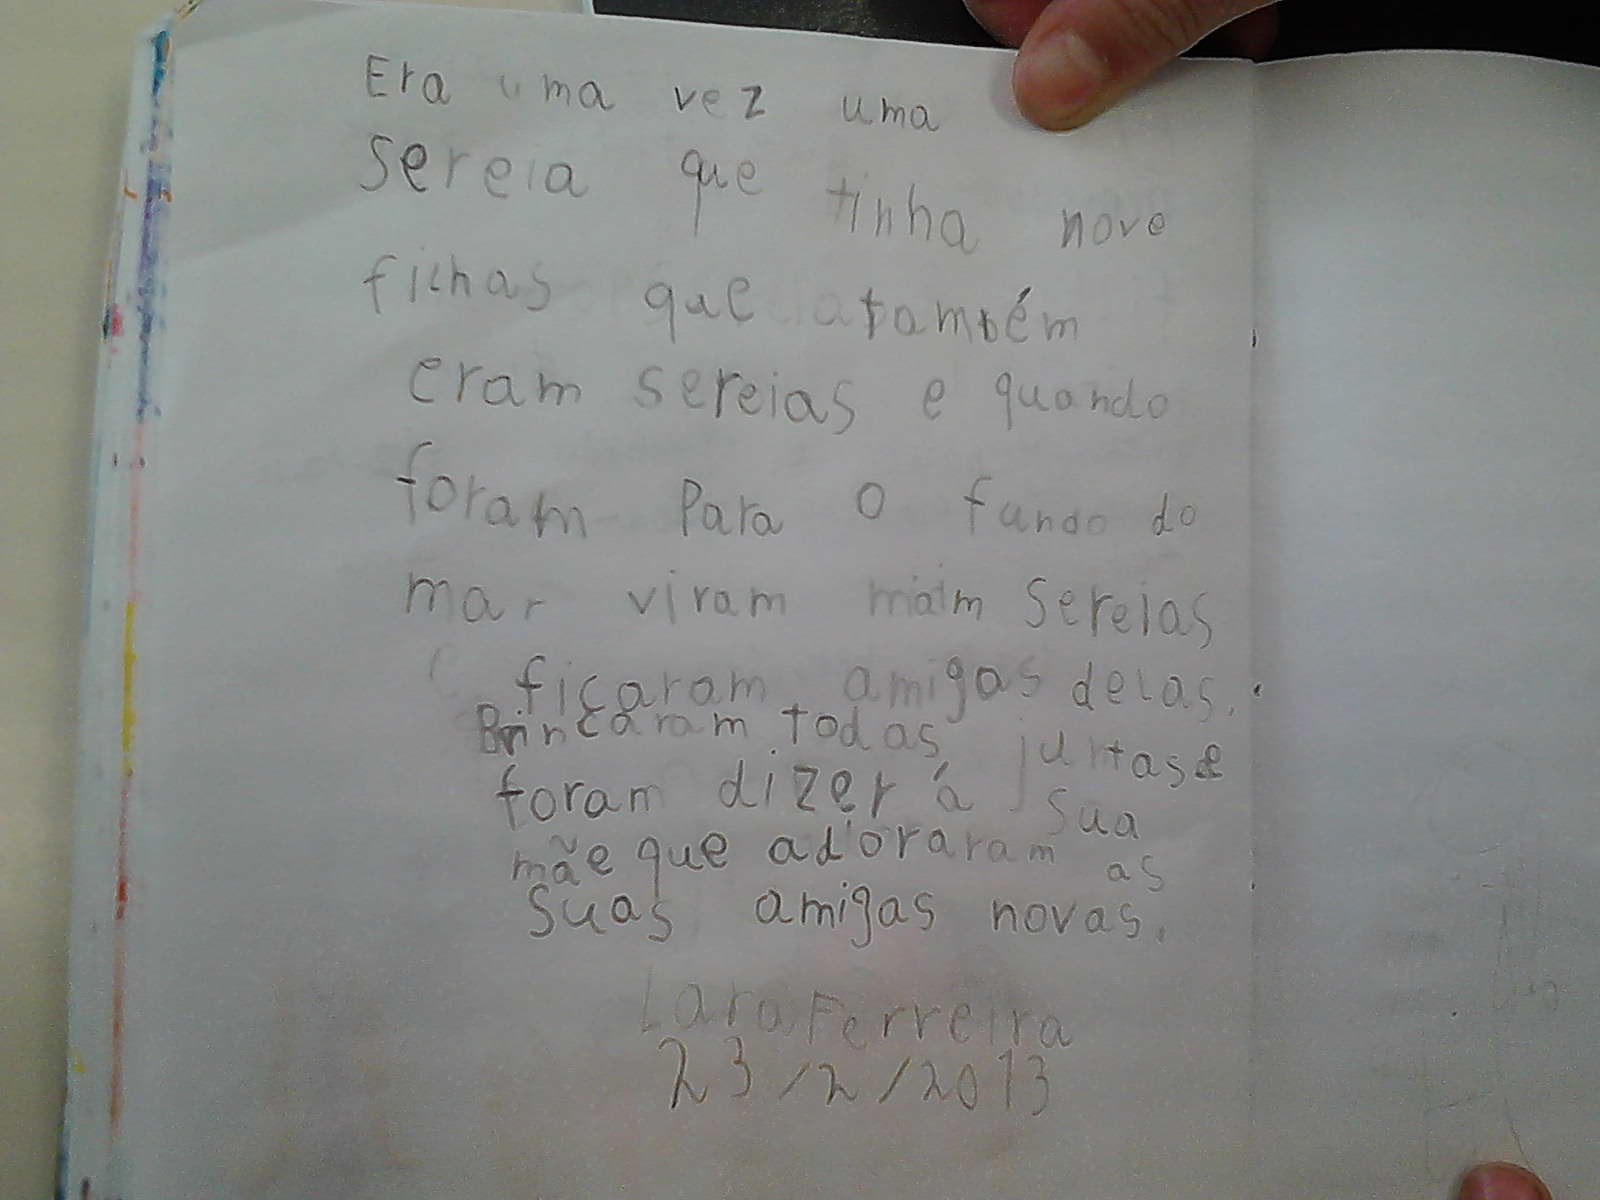 Era uma vez uma
sereia que tinha nove
filhas que também
eram sereias e quando
foram Para o fundo do
mar viram maim sereias
ficaram amigas delas.
Brincaram todas juntas e
foram dizer á sua
mãe que adoraram as
suas amigas novas.
Lara Ferreira
23/2/2013